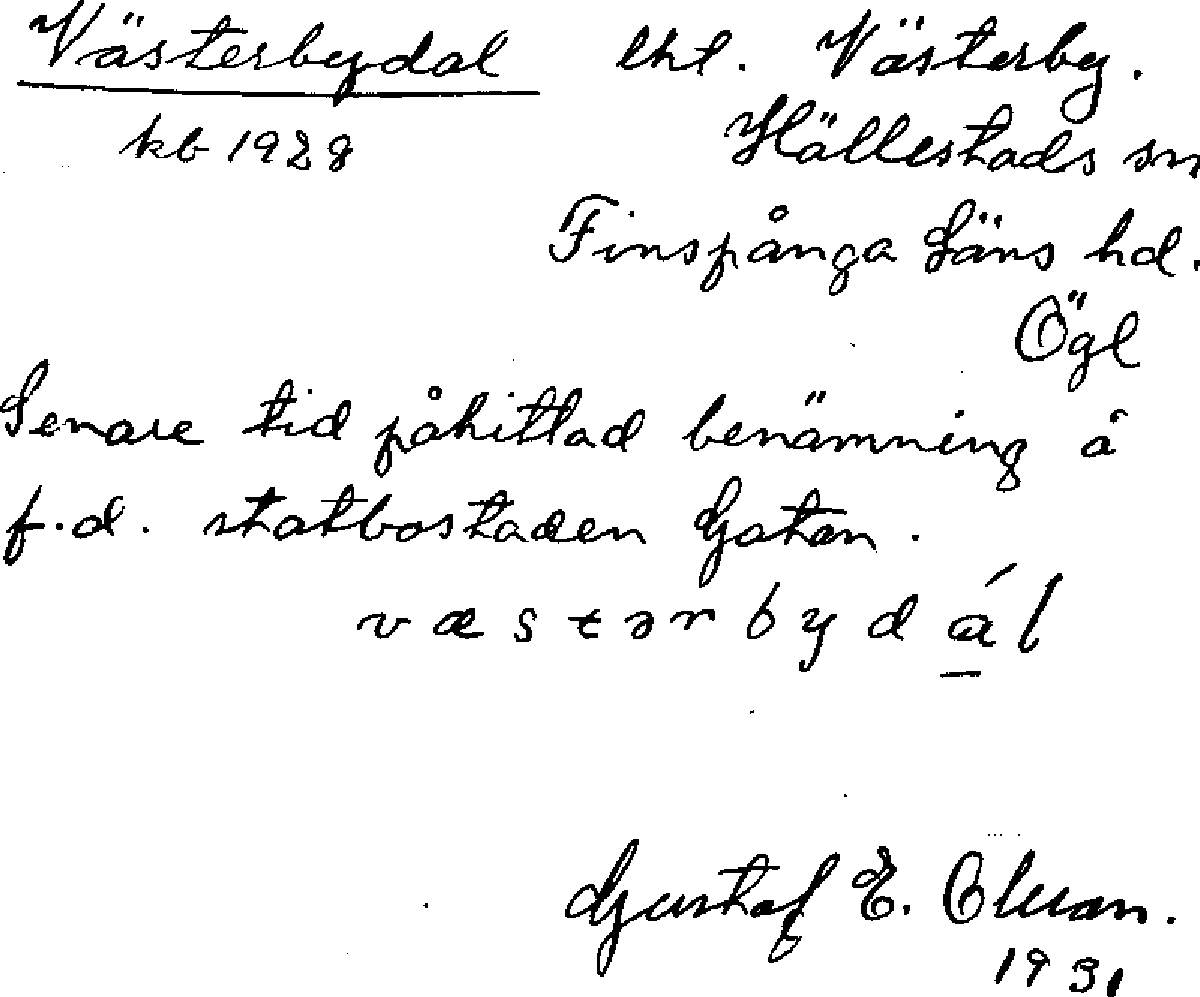 Västerbydal lht. Västerby.
kb 1928 Hällestads sn
Finspånga Läns hd.
Ögl
Senare tid påhittad benämning å
f.d. statbostaden Gatan.
væstərbydál
Gustaf E. Olsson.
1931